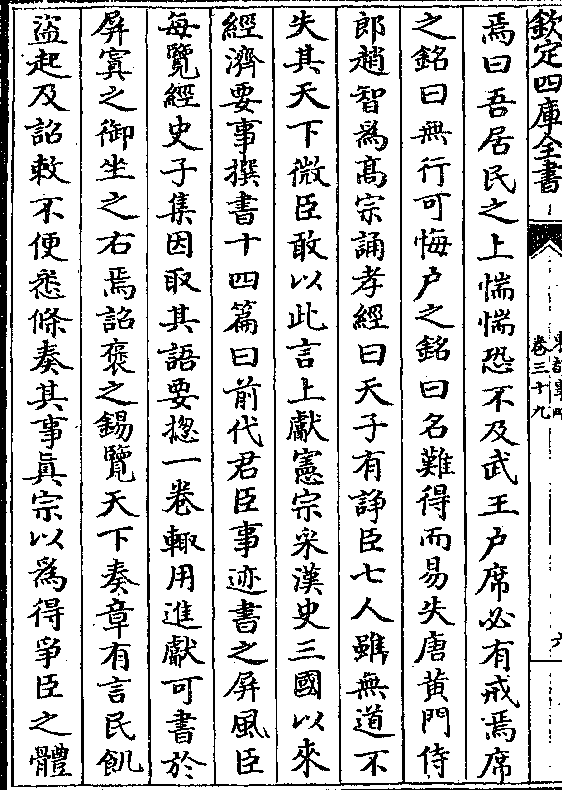 欽定四庫全書
東都事略
卷三十九
六
焉曰吾居民之上惴惴恐不及武王戶席必有戒焉席
之銘曰無行可悔戶之銘曰名難得而易失唐黄門侍
郎趙智為髙宗誦孝經曰天子有諍臣七人雖無道不
失其天下微臣敢以此言上獻憲宗采漢史三國以來
經濟要事撰書十四篇曰前代君臣事迹書之屏風臣
每覽經史子集因取其語要揔一卷輙用進獻可書於
屏寘之御坐之右焉詔褒之錫覽天下奏章有言民飢
盜起及詔敕不便悉條奏其事眞宗以為得爭臣之體